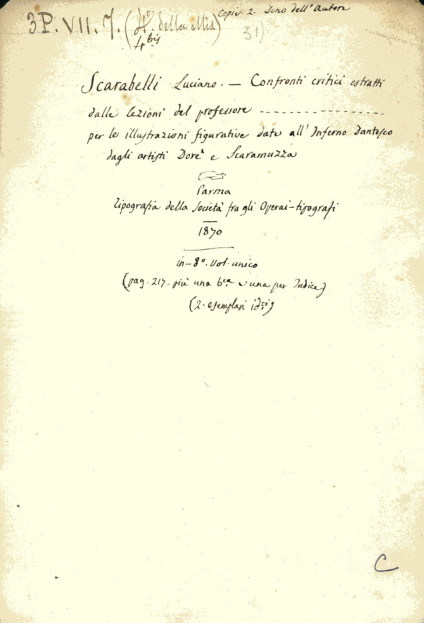 3P. VII. 7. (4° della Mia) Copie 2. Dono dell'Autore
4 bis 31)
Scarabelli Luciano. — Confronti critici estratti
dalle Lezioni del professore - - - - - - - - - - - - - -
per le illustrazioni figurative date all'Inferno Dantesco
dagli artisti Dorè e Scaramuzza
Parma
Tipografia della Società fra gli Operai-tipografi
1870
in-8°. Vol. unico
(pag. 217. più una b.ca e una per Indice)
(2. esemplari id.i)
C